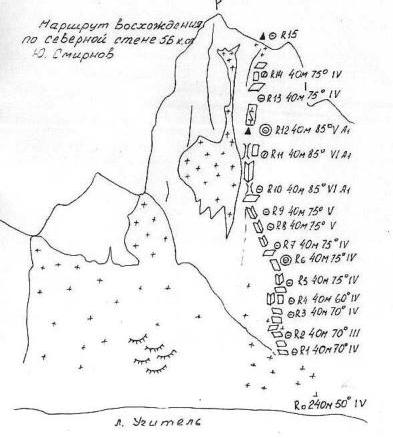 Маршрут восхождения
по северной стене 5Б к.сл
Ю. Смирнов
R15
R14 40м 75° IV
R13 40м 75° IV
R12 40м 85° V A1
R11 40м 85° VI A1
R10 40м 85° VI A1
R9 40м 75° V
R8 40м 75° V
R7 40м 75° IV
R6 40м 75° IV
R5 40м 75° IV
R4 40м 60° IV
R3 40м 70° IV
R2 40м 70° III
R1 40м 70° IV
R0 240м 50° IV
л. Учитель